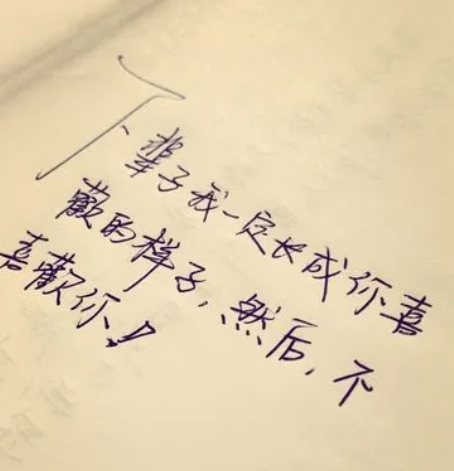 下辈子我一定长成你喜
歡的样子,然后,不
喜歡你!!